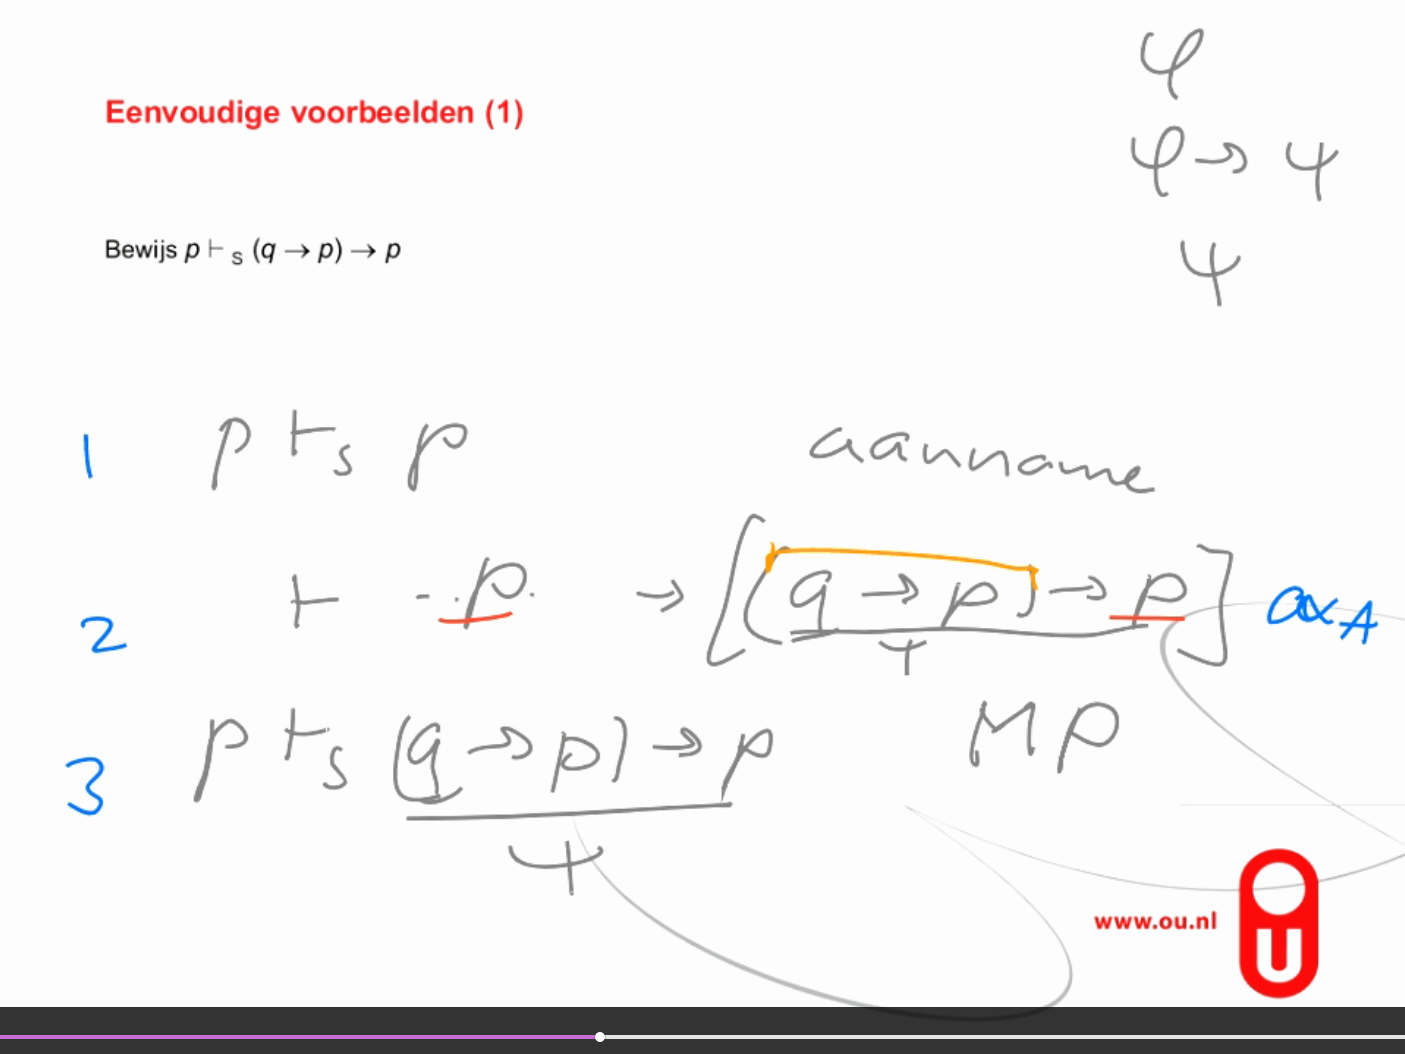 φ
φ → ψ
ψ
Eenvoudige voorbeelden (1)
Bewijs p ⊢ S (q → p) → p
1 p ⊢s p aanname
2 ⊢ p → [(q → p) → p] axA
ψ
3 p ⊢s (q → p) → p MP
ψ
www.ou.nl
U